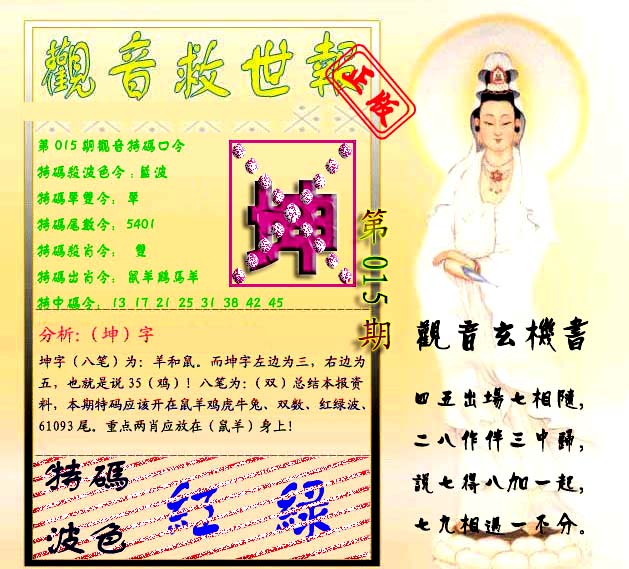 觀音救世報
正版
第015期觀音特碼口令
特碼殺波色令：藍波
特碼單雙令： 單
特碼尾數令： 5401
特碼殺肖令： 雙
特碼出肖令： 鼠羊鷄馬羊
特中碼令： 13 17 21 25 31 38 42 45
坤
第015期
分析:（坤）字
坤字（八笔）为：羊和鼠。而坤字左边为三，右边为
五，也就是说 35（鸡）！八笔为：（双）总结本报资
料，本期特码应该开在鼠羊鸡虎牛兔、双数、红绿波、
61093 尾。重点两肖应放在（鼠羊）身上！
特碼
波色
紅 綠
觀音玄機書
四五出場七相隨，
二八作伴三中歸，
說七得八加一起，
七九相遇一不分。